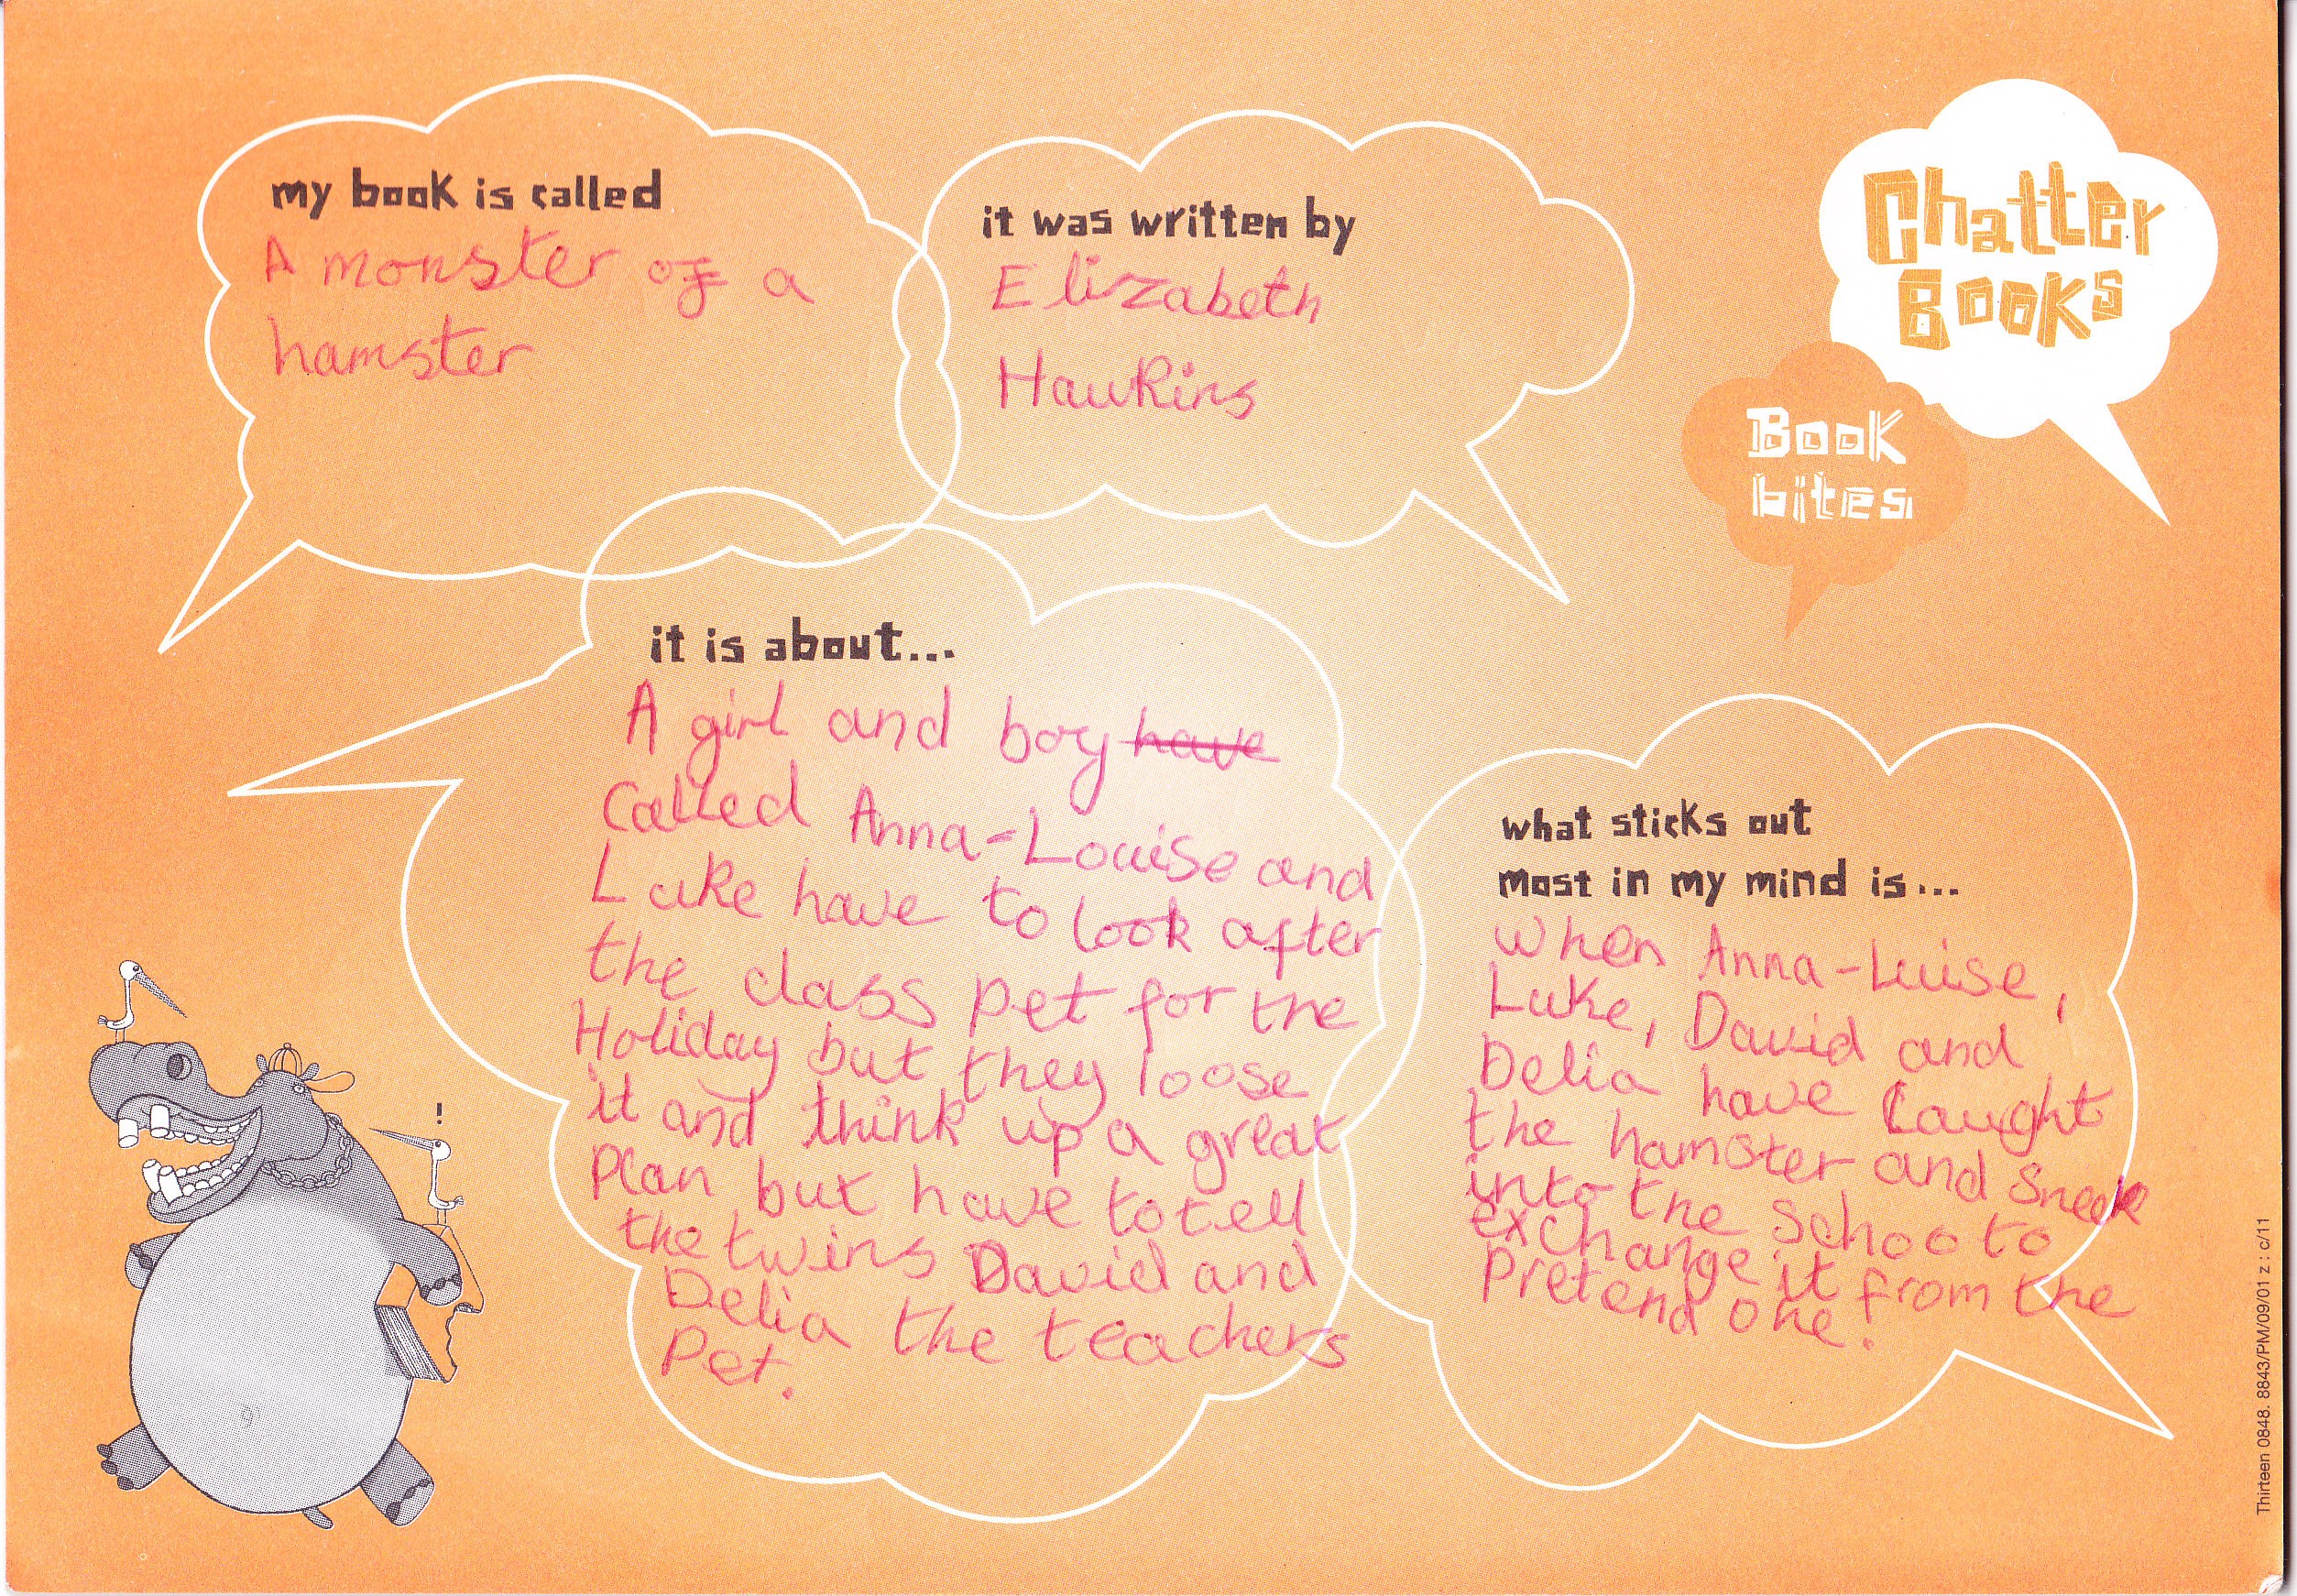 my book is called
A monster of a
hamster
it was written by
Elizabeth
Hawkins
Chatter
Books
Book
bites
it is about...
A girl and boy have
Called Anna-Louise and
Luke have to look after
the class pet for the
Holiday but they loose
it and think up a great
Plan but have to tell
the twins David and
Delia the teachers
Pet.
what sticks out
most in my mind is...
when Anna-Luise,
Luke, David and
Delia have Caught
the hamster and sneek
into the schoo to
exchange it from the
Pretend one!
!
Thirteen 0848. 8843/PM/09/01 z : c/11